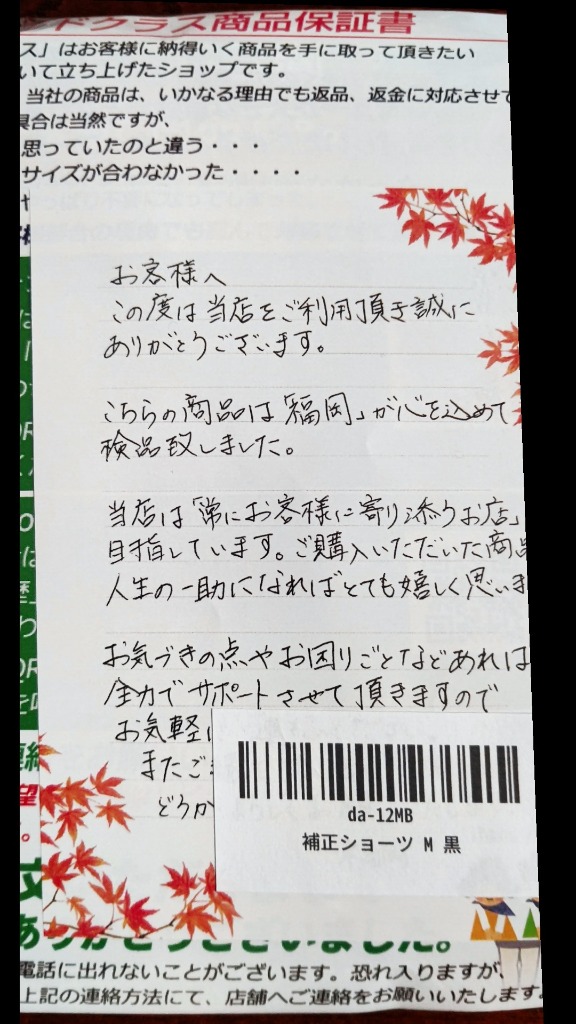 ドクラス商品保証書
ス」はお客様に納得いく商品を手に取って頂きたい
いて立ち上げたショップです。
当社の商品は、いかなる理由でも返品、返金に対応させて
具合は当然ですが、
思っていたのと違う・・・
サイズが合わなかった・・・・
お客様へ
この度は当店をご利用頂き誠に
ありがとうございます。
こちらの商品は「福岡」が心を込めて
検品致しました。
当店は「常にお客様に寄り添うお店」
目指しています。ご購入いただいた商品
人生の一助になればとても嬉しく思いま
お気づきの点やお困りごとなどあれば
全力でサポートさせて頂きますので
お気軽に
またご
どうか
da-12MB
補正ショーツ M 黒
ありがとうございました。
電話に出れないことがございます。恐れ入りますが、
上記の連絡方法にて、店舗へご連絡をお願いいたします。